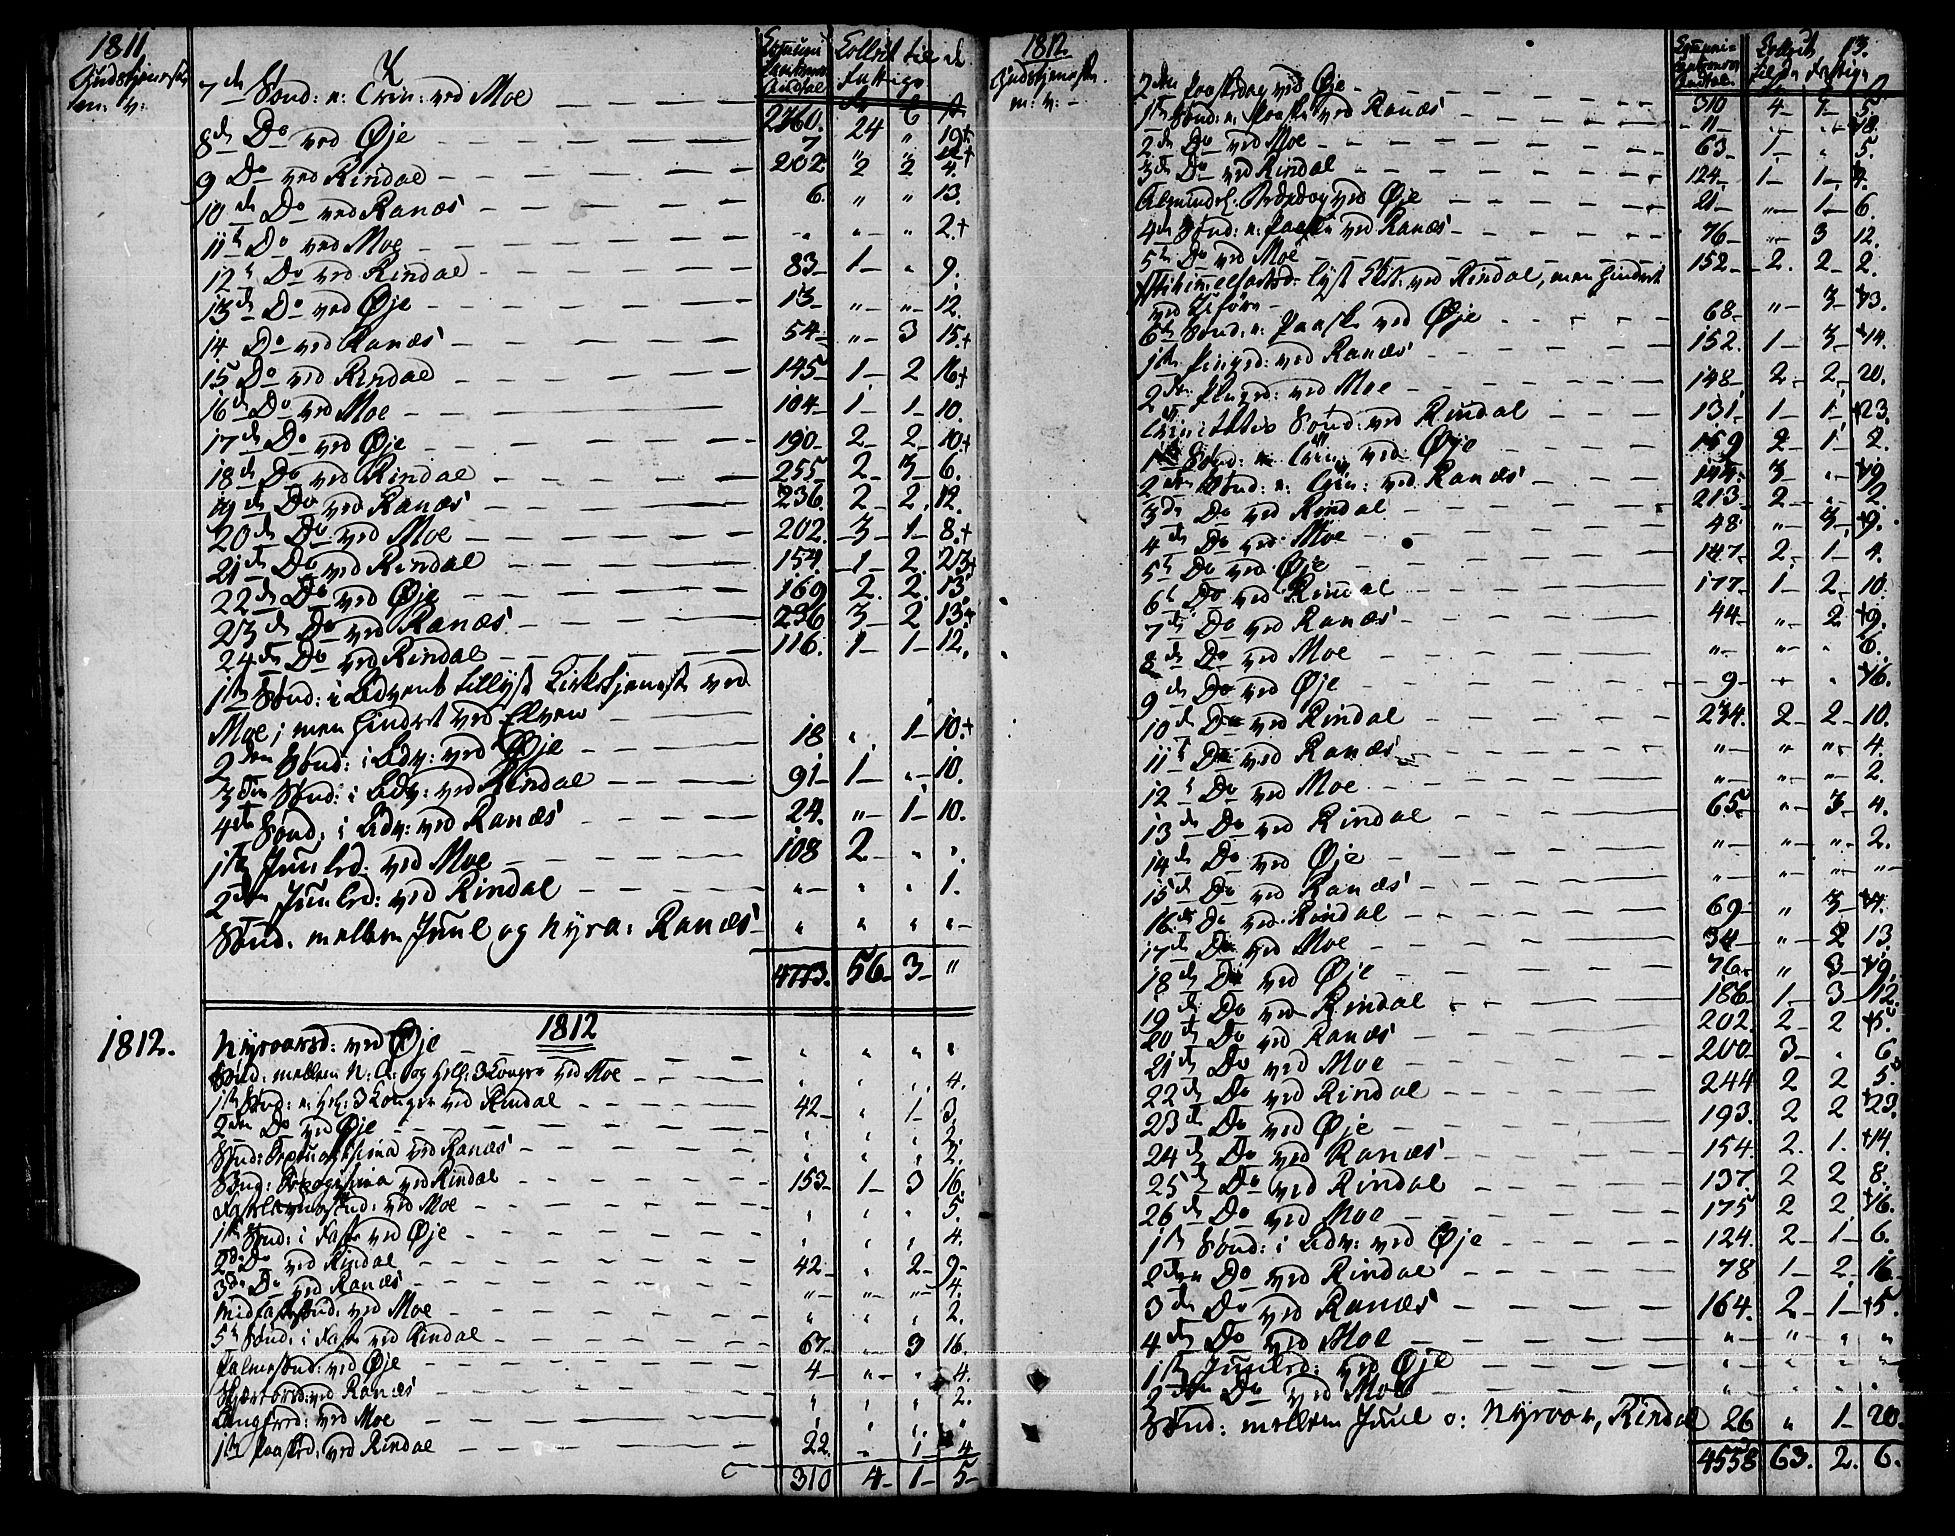 1811
Gudstjenester
m: v:
Communi-
canternes
Andtal
Collect til de
fattige
7de Sønd: n: Trin: ved Moe 2260. 24 " 19+
8de Do ved Øje 7 " " 12+
9 Do ved Rindal 202 2 2 4.
10de Do ved Ranæs 6. " " 13.
11te Do ved Moe " " " 2.+
12te Do ved Rindal 83 1 " 9.
13de Do ved Øje 13 " " 12.
14 Do ved Ranæs 54 " 3 15.+
15 Do ved Rindal 145 1 2 16+
16de Do ved Moe 104 1 1 10.
17de Do ved Øje 190 2 2 10+
18de Do ved Rindal 255 2 3 6.
19de Do ved Ranæs 236. 2 2. 12.
20de Do ved Moe 202. 3 1 8.+
21de Do ved Rindal 154. 1 2. 23+
22de Do ved Øje 169 2. 2. 13
23de Do ved Ranæs 236 3 2 13+
24de Do ved Rindal 116. 1 1 12.
1ste Sønd: i Advent tillyst Kirketjeneste ved
Moe, men hindret ved Elven
2den Sønd: i Adv: ved Øje 18 " 1 10.+
3die Sønd: i Adv: ved Rindal 91 1 " 10.
4de Sønd: i Adv: ved Ranæs 24. " 1 10.
1ste Juuled: ved Moe 108 2 " "
2den Juuled: ved Rindal " " " 1.
Sønd: mellem Juul og Nyra: Ranæs " " " "
4773. 56 3 "
1812.
1812
Nyraarsd: ved Øje " " " "
Sønd: mellem N: A: og Hel: 3 Konger ved Moe " " " 4.
1ste Sønd: n: Hel: 3 Konger ved Rindal 42 " 1 3
2den Do ved Øje " " " 2.
Sønd: Septuagesima ved Ranæs " " " 2.
Sønd: Sexagesima ved Rindal 153 1 3 16
Fastelavnssønd: ved Moe " " " 5.
1ste Sønd: i Faste ved Øje " " " 4.
2de Do ved Rindal 42 " 2 9
3die Do ved Ranæs " " " 4.
Midfastesønd: ved Moe " " " 2.
5te Sønd: i Faste ved Rindal 67 " 3 16.
Palmesønd: ved Øje 4 " " 4.
Skjærtorsd: ved Ranæs " " " 2.
Langfred: ved Moe " " " "
1ste Paasked: ved Rindal 22. " 1 4
310 4 1 5
1812
Gudstjenester
m: v:
Communi-
canternes
Andtal
Collect
til de fattige
13.
2den Paaskedag ved Øje 310 4 1 5.
1ste Sønd: n: Paaske ved Ranæs 11 " " +18.
2den Do ved Moe 63 1 " 5.
3de Do ved Rindal 124 1 1 4.
Almindel: Bededag ved Øje 21 " 1 6.
4de Sønd: n: Paaske ved Ranæs 76 " 3 12.
5te Do ved Moe 152 2. 2 2.
Christi himmelfartsd: lyst Tst: ved Rindal, men hindret
ved Uføre
6te Sønd: n: Paaske ved Øje 68 " 3 +13.
1ste Pinsed: ved Ranæs 152. 1 3 +14.
2den Pinsed: ved Moe 148 2. 2 20.
Trinitatis Sønd: ved Rindal 131 1 1 +23.
1ste Sønd: n: Trin: ved Øje 159 2 1 2.
2den Sønd: n: Trin: ved Ranæs 144. 3 " +19
3de Do ved Rindal 213 2 " 2.
4de Do ved Moe 48 " 3 +9.
5te Do ved Øje 147 2 1 4.
6te Do ved Rindal 177 1 2 10.
7de Do ved Ranæs 44 " 2 +9.
8de Do ved Moe " " " 6.
9de Do ved Øje 9 " " +16.
10de Do ved Rindal 234. 2 2 10.
11te Do ved Ranæs " " " 4.
12te Do ved Moe " " " 2.
13de Do ved Rindal 65 " 3 4.
14de Do ved Øje " " " 2.
15de Do ved Ranæs " " " "
16de Do ved Rindal 69 " 3 +4.
17de Do ved Moe 34 " 2 13.
18de Do ved Øje 76 " 3 +19.
19de Do ved Rindal 186 1 3 12.
20de Do ved Ranæs 202. 2 2 +5.
21de Do ved Moe 200 3 " 6
22de Do ved Rindal 244 2 2 5.
23de Do ved Øje 193. 2 2 +23.
24de Do ved Ranæs 154. 2. 1. +14.
25de Do ved Rindal 137 2 2 8.
26de Do ved Moe 175 2 2 +16.
1ste Sønd: i Adv: ved Øje 124. 2 1 6.
2den Do ved Rindal 78 1 2 16
3de Do ved Ranæs 164. 2 1 +5.
4de Do ved Moe " " " "
1ste Juuled: ved Øje " " " "
2den Do ved Moe " " " "
Sønd: mellem Juul o: Nyraar, Rindal 26 " 1 20.
4558 63. 2. 6.